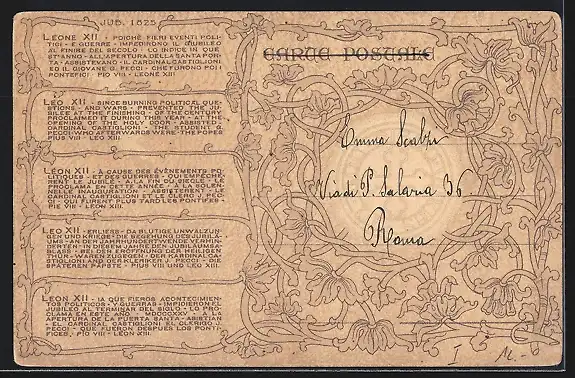 JUB. 1825
LEONE XII - POICHÈ FIERI EVENTI POLI-
TICI - E GUERRE - IMPEDIRONO IL GIUBILEO
AL FINIRE DEL SECOLO - LO INDICE IN QUE
ST'ANNO - ALL'APERTURA DELLA SANTA POR-
TA - ASSISTEVANO - IL CARDINAL CASTIGLIONI
ED IL GIOVANE G. PECCI - CHE FURONO POI I
PONTEFICI PIO VIII - LEONE XIII
LEO XII - SINCE BURNING POLITICAL QUE-
STIONS - AND WARS - PREVENTED THE JU-
BILEE AT THE FINISHING - OF THE CENTURY
PROCLAIMED IT DURING THIS YEAR - AT THE
OPENING OF THE HOLY DOOR - ASSISTED
CARDINAL CASTIGLIONI - THE STUDENT G.
PECCI - WHO AFTERWARDS WERE THE POPES
PIUS VIII - LEO XIII
LÉON XII - A CAUSE DES ÉVÈNEMENTS PO-
LITIQUES - ET DES GUERRES - QUI EMPÊCHÈ-
RENT LE JUBILÉ - A LA FIN DU SIECLE - LE
PROCLAMA EN CETTE ANNÉE - A LA SOLEN-
NELLE INAUGURATION - ASSISTERENT - LE
CARDINAL CASTIGLIONI ET LE CLERC J. PEC-
CI - QUI FURENT PLUS TARD LES PONTIFES -
PIE VIII - LÉON XIII
LEO XII - ERLIESS - DA BLUTIGE UNWÄLZUN-
GEN UND KRIEGE DIE BEGEHUNG DES JUBILÄ-
UMS - AN DER JAHRHUNDERTWENDE VERHIN-
DERTEN - IN DIESEM JAHRE DES JUBILÄUMSA-
BLASS - BEI DER EROFFNUNG DER HEILIGEN
THÜR - WAREN ZUGEGEN - DER KARDINAL CA-
STIGLIONI AND DER KLERIKER J. PECCI - DIE
SPÄTEREN PÄPSTE - PIUS VIII UND LEO XIII.
LEON XII - IA QUE FIEROS ACONTECIMIEN-
TOS POLITICOS - Y GUERRAS - IMPIDIERON EL
JUBILEO AL TERMINAR DEL SIGLO - LO PRO-
CLAMA EN ESTE AÑO - MDCCCXXV - A LA
APERTURA DE LA PUERTA SANTA - ASISTIAN
- EL CARDINAL CASTIGLIONI EL CLERIGO J.
PECCI - QUE FUERON DESPUES LOS PONTI-
FICES, PIO VIII - LEON XIII.
CARTE POSTALE
Emma Scalpi
Via di P. Salaria 36
Roma
I